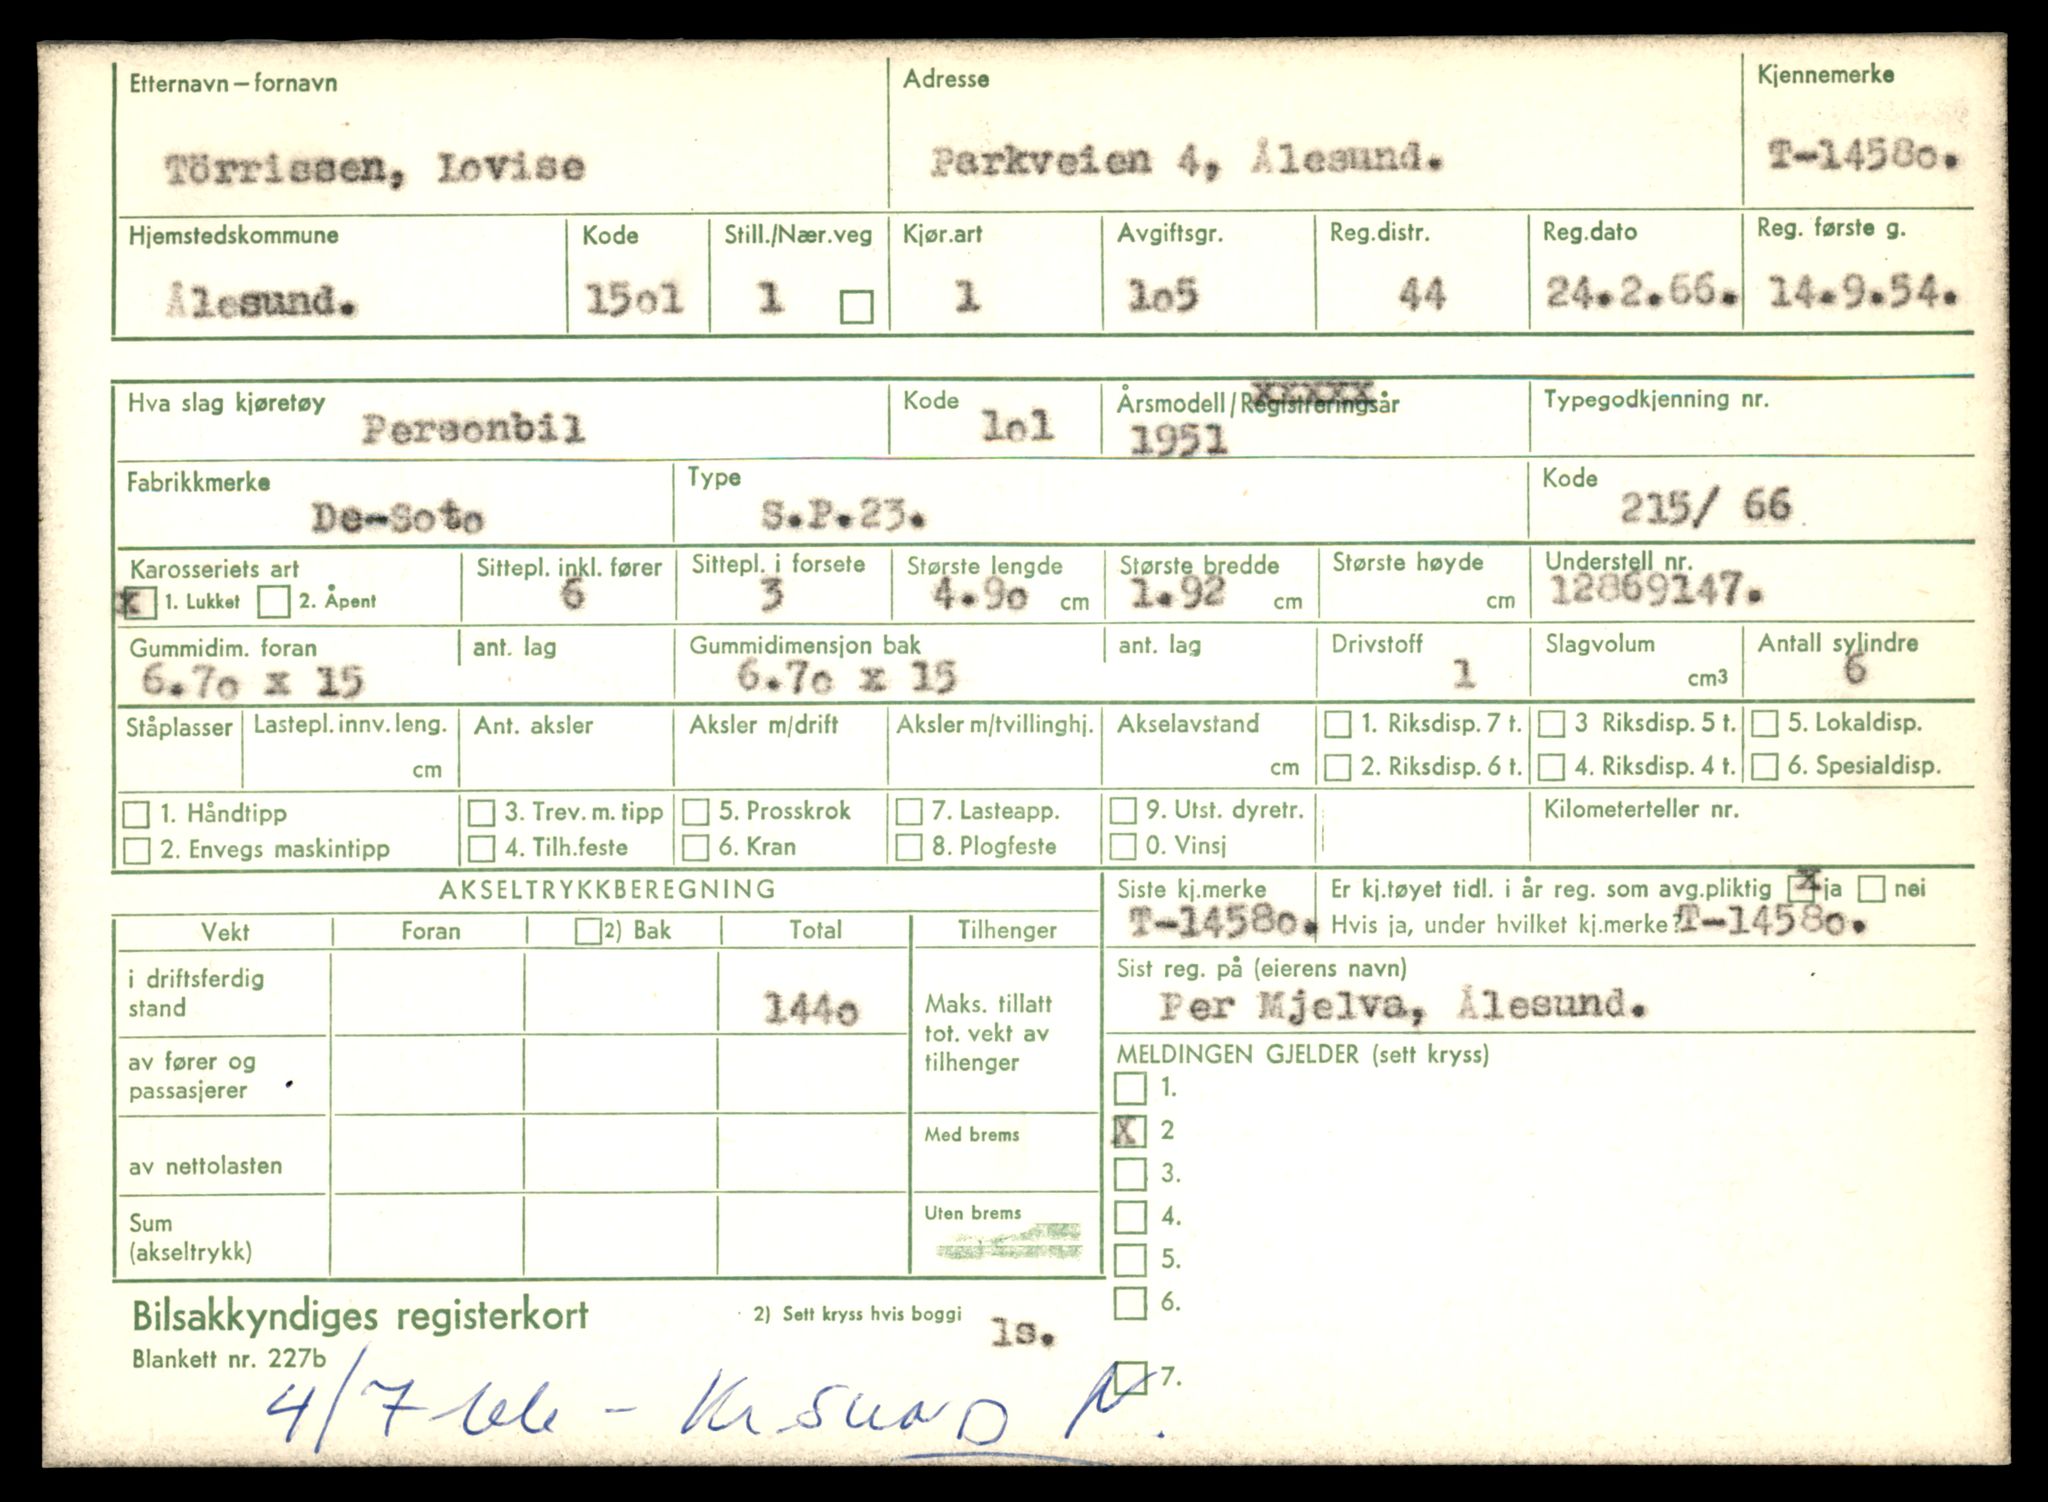 Etternavn – fornavn Adresse Kjennemerke
Törrissen, Lovise Parkveien 4, Ålesund. T-1458o.
Hjemstedskommune Kode Still./Nær.veg Kjør.art Avgiftsgr. Reg.distr. Reg.dato Reg. første g.
Ålesund. 15o1 1 1 1o5 44 24.2.66. 14.9.54.
Hva slag kjøretøy Kode Årsmodell/Registreringsår Typegodkjenning nr.
Personbil 1o1 1951
Fabrikkmerke Type Kode
De-Soto S.P.23. 215/ 66
Karosseriets art Sittepl. inkl. fører Sittepl. i forsete Største lengde Største bredde Største høyde Understell nr.
x 1. Lukket 2. Åpent 6 3 4.9o cm 1.92 cm cm 12869147.
Gummidim. foran ant. lag Gummidimensjon bak ant. lag Drivstoff Slagvolum Antall sylindre
6.7o x 15 6.7o x 15 1 cm³ 6
Ståplasser Lastepl. innv. leng. Ant. aksler Aksler m/drift Aksler m/tvillinghj. Akselavstand 1. Riksdisp. 7 t. 3 Riksdisp. 5 t. 5. Lokaldisp.
cm cm 2. Riksdisp. 6 t. 4. Riksdisp. 4 t. 6. Spesialdisp.
1. Håndtipp 3. Trev. m. tipp 5. Prosskrok 7. Lasteapp. 9. Utst. dyretr. Kilometerteller nr.
2. Envegs maskintipp 4. Tilh.feste 6. Kran 8. Plogfeste 0. Vinsj
AKSELTRYKKBEREGNING Siste kj.merke Er kj.tøyet tidl. i år reg. som avg.pliktig x ja nei
T-1458o. Hvis ja, under hvilket kj.merke? T-1458o.
Vekt Foran 2) Bak Total Tilhenger
Sist reg. på (eierens navn)
Per Mjelva, Ålesund.
i driftsferdig
stand 144o
Maks. tillatt
tot. vekt av
tilhenger
av fører og
passasjerer
MELDINGEN GJELDER (sett kryss)
1.
X 2
3.
4.
5.
6.
7.
Med brems
av nettolasten
Uten brems
Sum
(akseltrykk)
Bilsakkyndiges registerkort 2) Sett kryss hvis boggi 1s.
Blankett nr. 227b
4/7 66 – Kr SUND N.